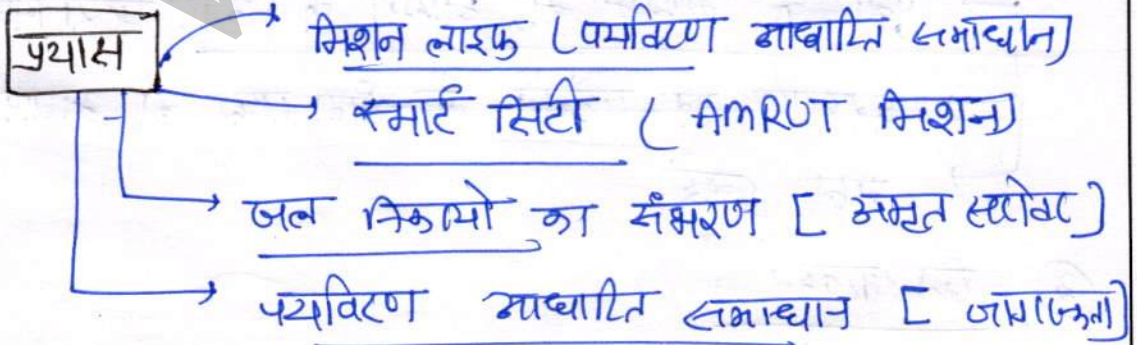 प्रयास
मिशन लाइफ (पर्यावरण आधारित समाधान)
स्मार्ट सिटी ( AMRUT मिशन)
जल निकायो का संभरण [ अमृत सरोवर ]
पर्यावरण आधारित समाधान [ जागरूकता]